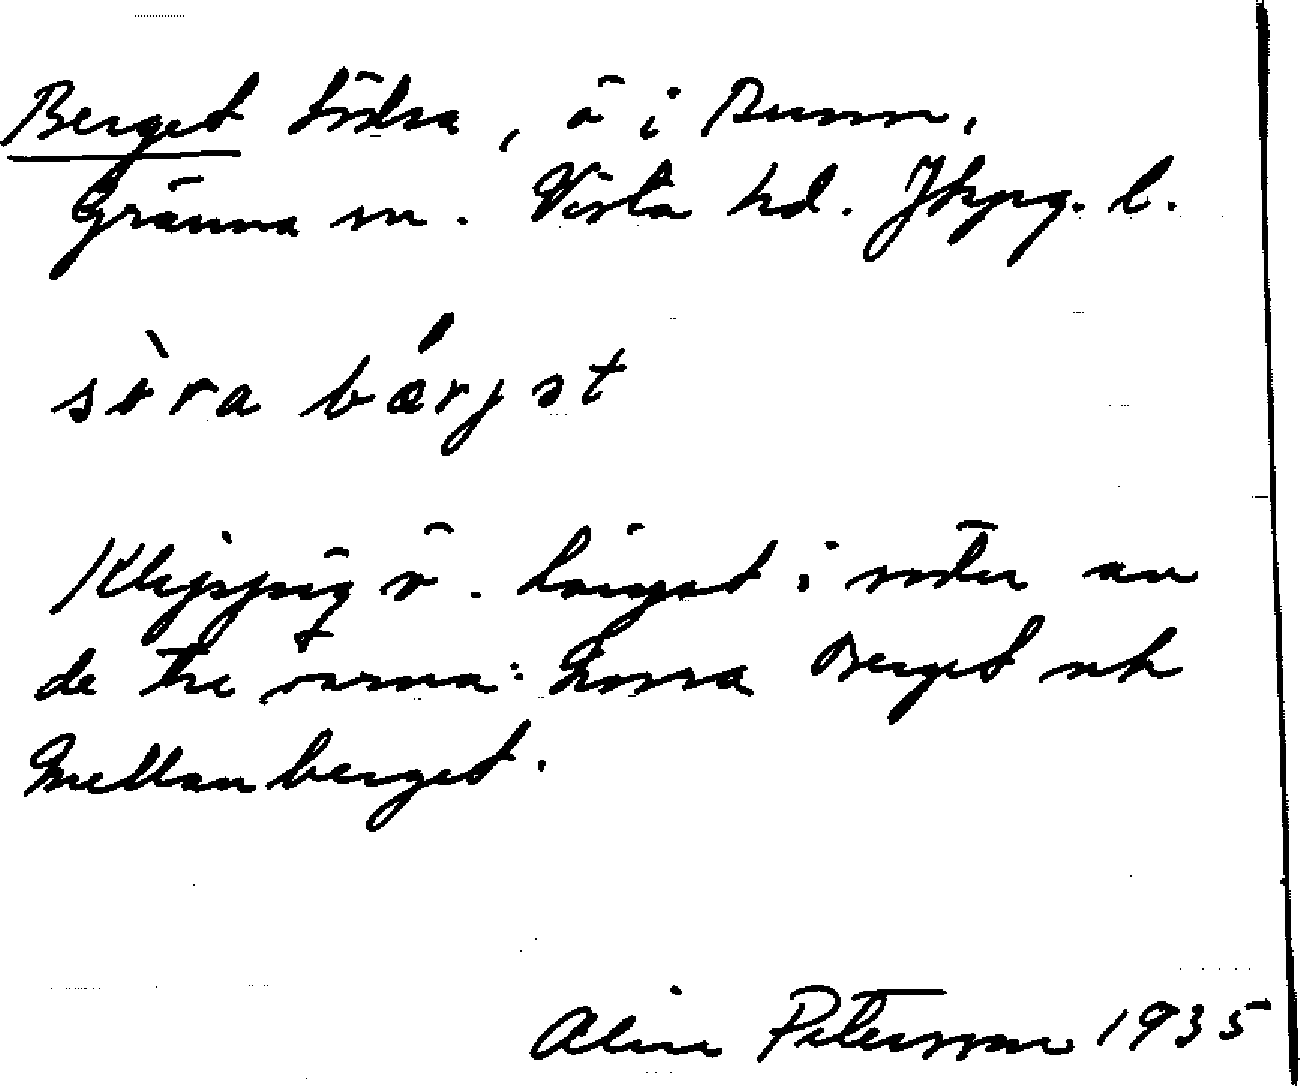 Berget Södra, ö i Bunn,
Gränna sn. Vista hd. Jkpg. l.
sòra bǽrjət
Klippig ö. Längst i söder av
de tre öarna: Norra Berget och
Mellanberget.
Aline Petersson 1935